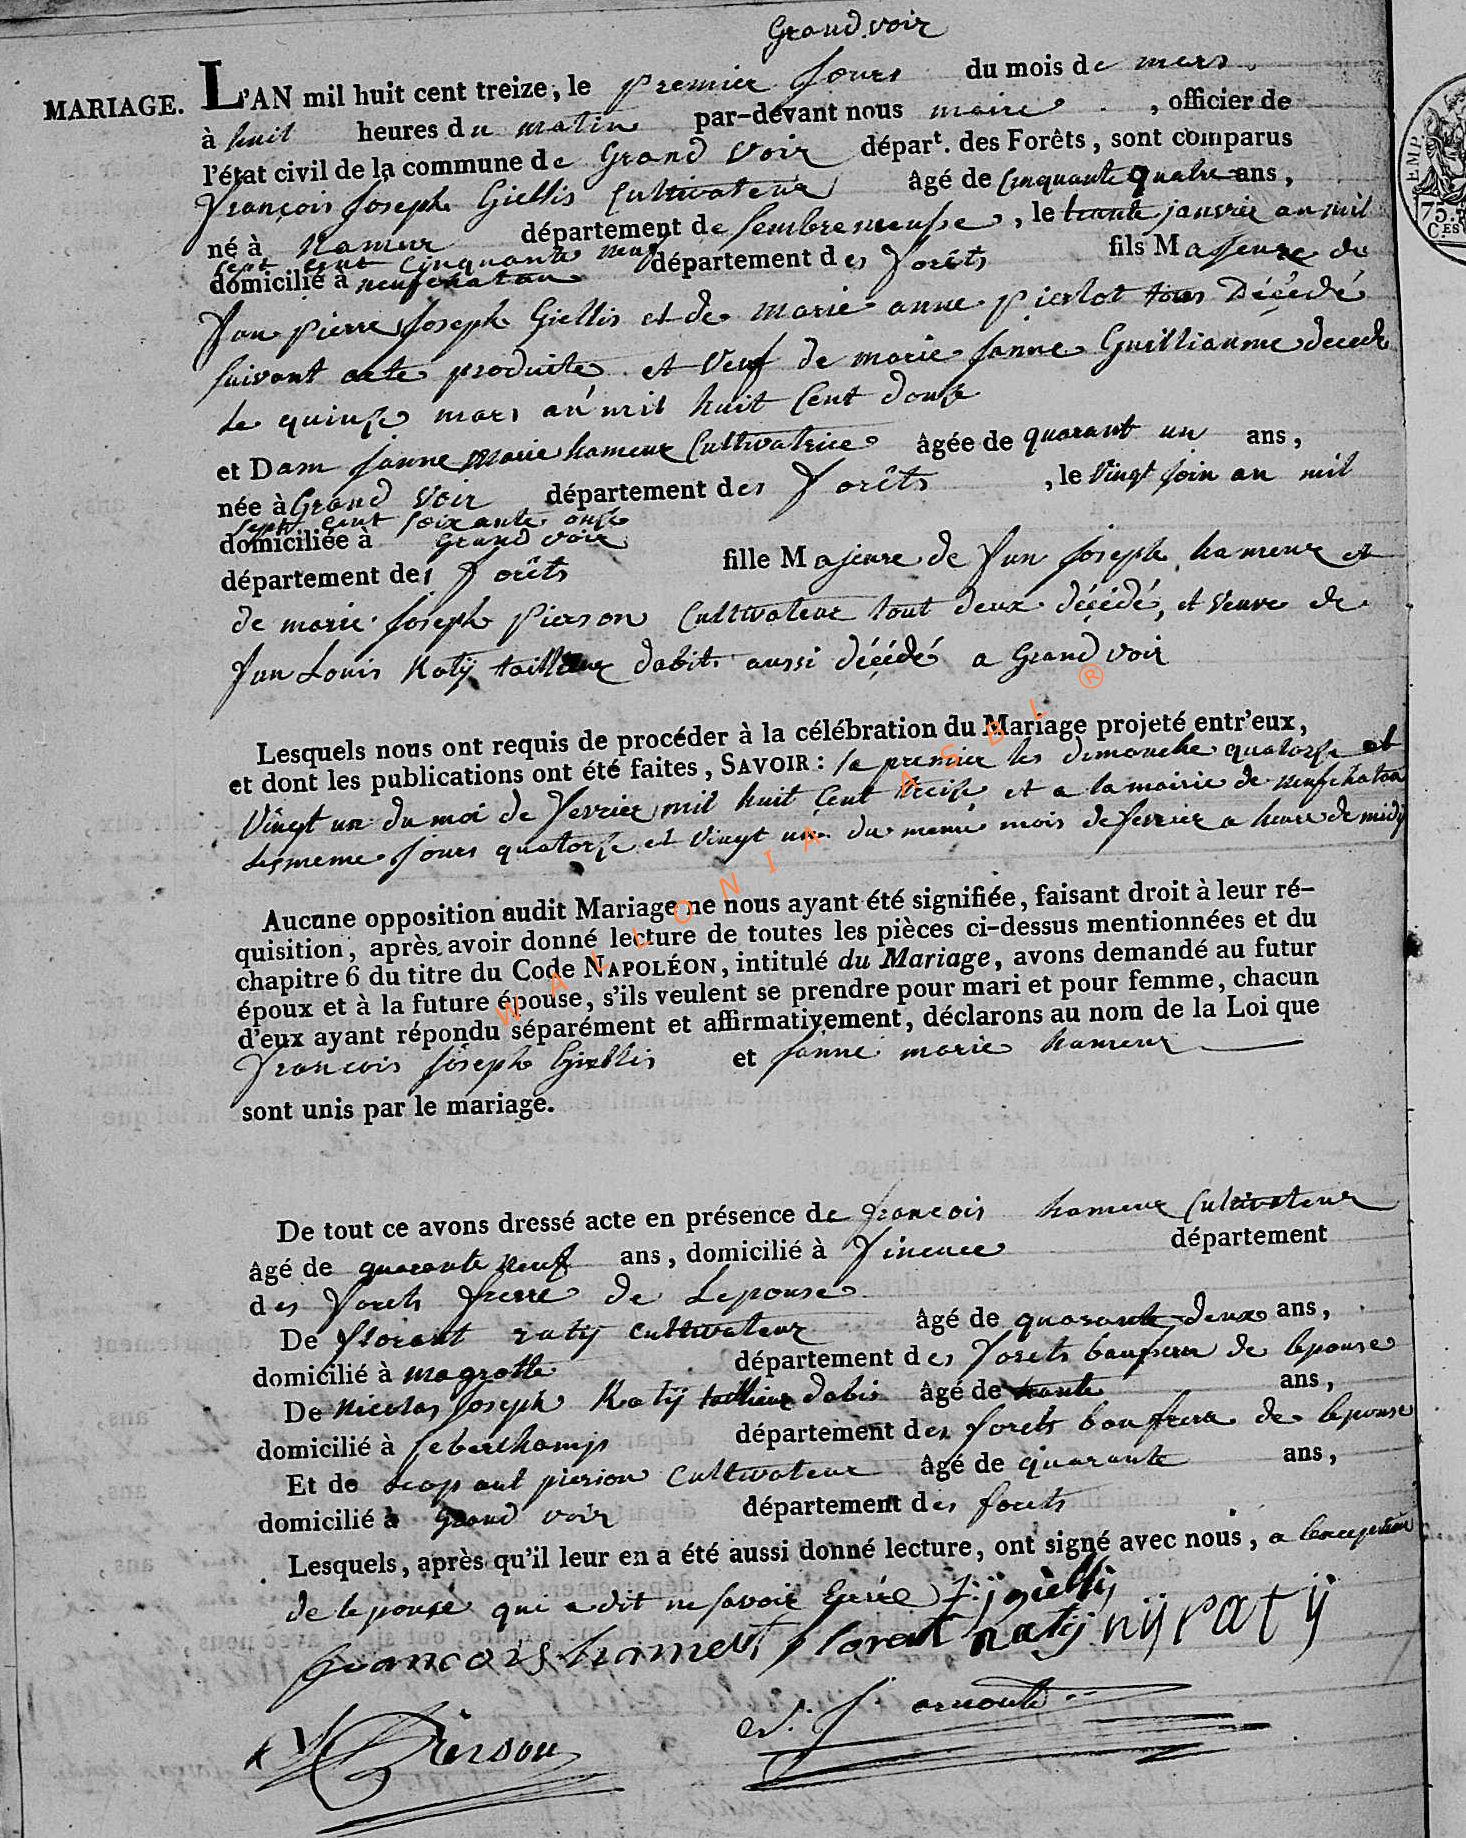 Grand voir
MARIAGE.
L'AN mil huit cent treize, le premier Jours du mois de mers
à huit heures du matin par-devant nous maire, officier de
l'état civil de la commune de Grand Voir départ. des Forêts, sont comparus
François Joseph Giellis Cultivateur âgé de Cinquante quatre ans,
né à Namur département de Sembremeuse, le trante janvier an mil
sept cent cinquante neuf
domicilié à neufchatau département des Forêts fils Majeure de
Jan pierre Joseph Giellis et de marie anne pierlot tous Décédé
suivant acte produite et Veuf de marie Janne Guilliaume decede
le quinze mars an mil huit Cent douze
et Dam Janne Marie hameur Cultivatrice âgée de quarant un ans,
née à Grand Voir département des Forêts, le Vingt Join an mil
sept cent soixante onze
domiciliée à Grand voir
département des Forêts fille Majeure de Jan Joseph hameur et
de marie Joseph pierson Cultivateur tout deux décédé, et veuve de
Jan Louis Ratÿ tailleur dabit aussi décédé a Grand voir
Lesquels nous ont requis de procéder à la célébration du Mariage projeté entr'eux,
et dont les publications ont été faites, SAVOIR : la premier les dimanche quatorze et
Vingt un du moi de Fevrier mil huit Cent treize et a la mairie de neufchatau
les meme Jours quatorze et Vingt un du meme mois de fevrier a heure de midÿ
Aucune opposition audit Mariage ne nous ayant été signifiée, faisant droit à leur ré-
quisition, après avoir donné lecture de toutes les pièces ci-dessus mentionnées et du
chapitre 6 du titre du Code NAPOLÉON, intitulé du Mariage, avons demandé au futur
époux et à la future épouse, s'ils veulent se prendre pour mari et pour femme, chacun
d'eux ayant répondu séparément et affirmativement, déclarons au nom de la Loi que
François Joseph Giellis et Janne marie hameur
sont unis par le mariage.
De tout ce avons dressé acte en présence de François hameur Cultivateur
âgé de quarante neuf ans, domicilié à Fineuce département
des Forets frere de Lepouse
De florant ratij cultivateur âgé de quarante deux ans,
domicilié à magrotte département des Forets baufrere de lepouse
De Nicolas Joseph Ratÿ tailleur dabis âgé de trante ans,
domicilié à Seberchamps département des forets baufrere de lepouse
Et de pierson Cultivateur âgé de quarante ans,
domicilié à Grand voir département des forets
Lesquels, après qu'il leur en a été aussi donné lecture, ont signé avec nous, a lexception
de lepouse qui a dit ne savoir Ecrire f: j gielliş
francois hameur florent ratij nij ratÿ
Pierson
arnould
EMP.
75.
CES
WALLONIA ASBL ®